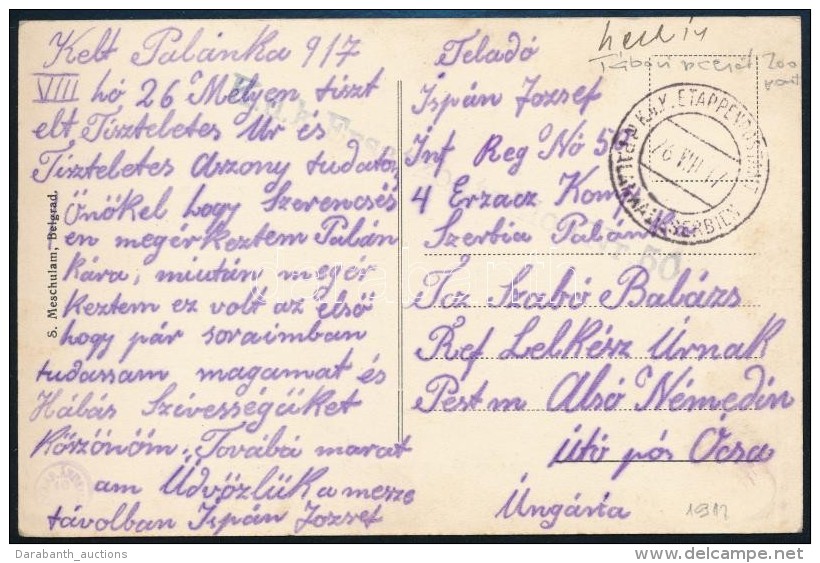 Kelt Palánka 917
VIII hó 26 Mélyen tiszt
elt Tiszteletes Úr és
Tiszteletes Aszony tudatom
Önökel hogy Szerencsés
en megérkeztem Palán
kára, miután megér
keztem ez volt az első
hogy pár soraimban
tudassam magamat és
Hábás Szivességüket
Körzönöm. Továbá marat
am Üdvözlük a messze
távolban Ispán Jozset
S. Meschulam, Belgrad.
Feladó
Ispán Jozsef
Inf Reg Nó
4 Erzacz Komp
Szerbia Palánk
Taz Szabó Balázs
Ref Lelkész Úrnak
Pest m Alsó Némedin
útó pós Ócsa
Üngária
1917
K.u.K. ETAPPENPOSTAMT
26 VIII 17
PALANKA in SERBIEN
Nr. 50
darabanth
Darabanth_auctions
delcampe.net